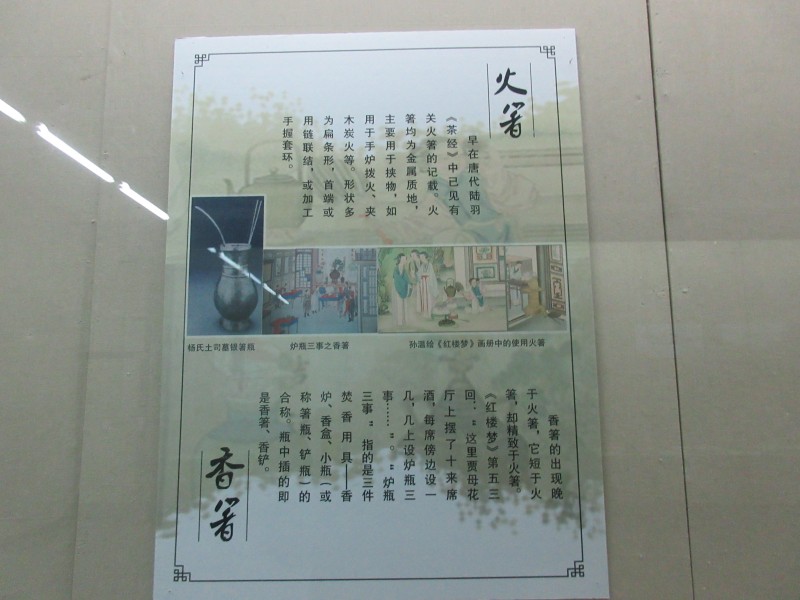 火箸
早在唐代陆羽
《茶经》中已见有
关火箸的记载。火
箸均为金属质地，
主要用于挟物，如
用于手炉拨火、夹
木炭火等。形状多
为扁条形，首端或
用链联结，或加工
手握套环。
杨氏土司墓银箸瓶
炉瓶三事之香箸
孙温绘《红楼梦》画册中的使用火箸
香箸的出现晚
于火箸，它短于火
箸，却精致于火箸。
《红楼梦》第五三
回：“这里贾母花
厅上摆了十来席
酒，每席傍边设一
几，几上设炉瓶三
事……”。“炉瓶
三事”指的是三件
焚香用具——香
炉、香盒、小瓶（或
称箸瓶、铲瓶）的
合称。瓶中插的即
是香箸、香铲。
香箸